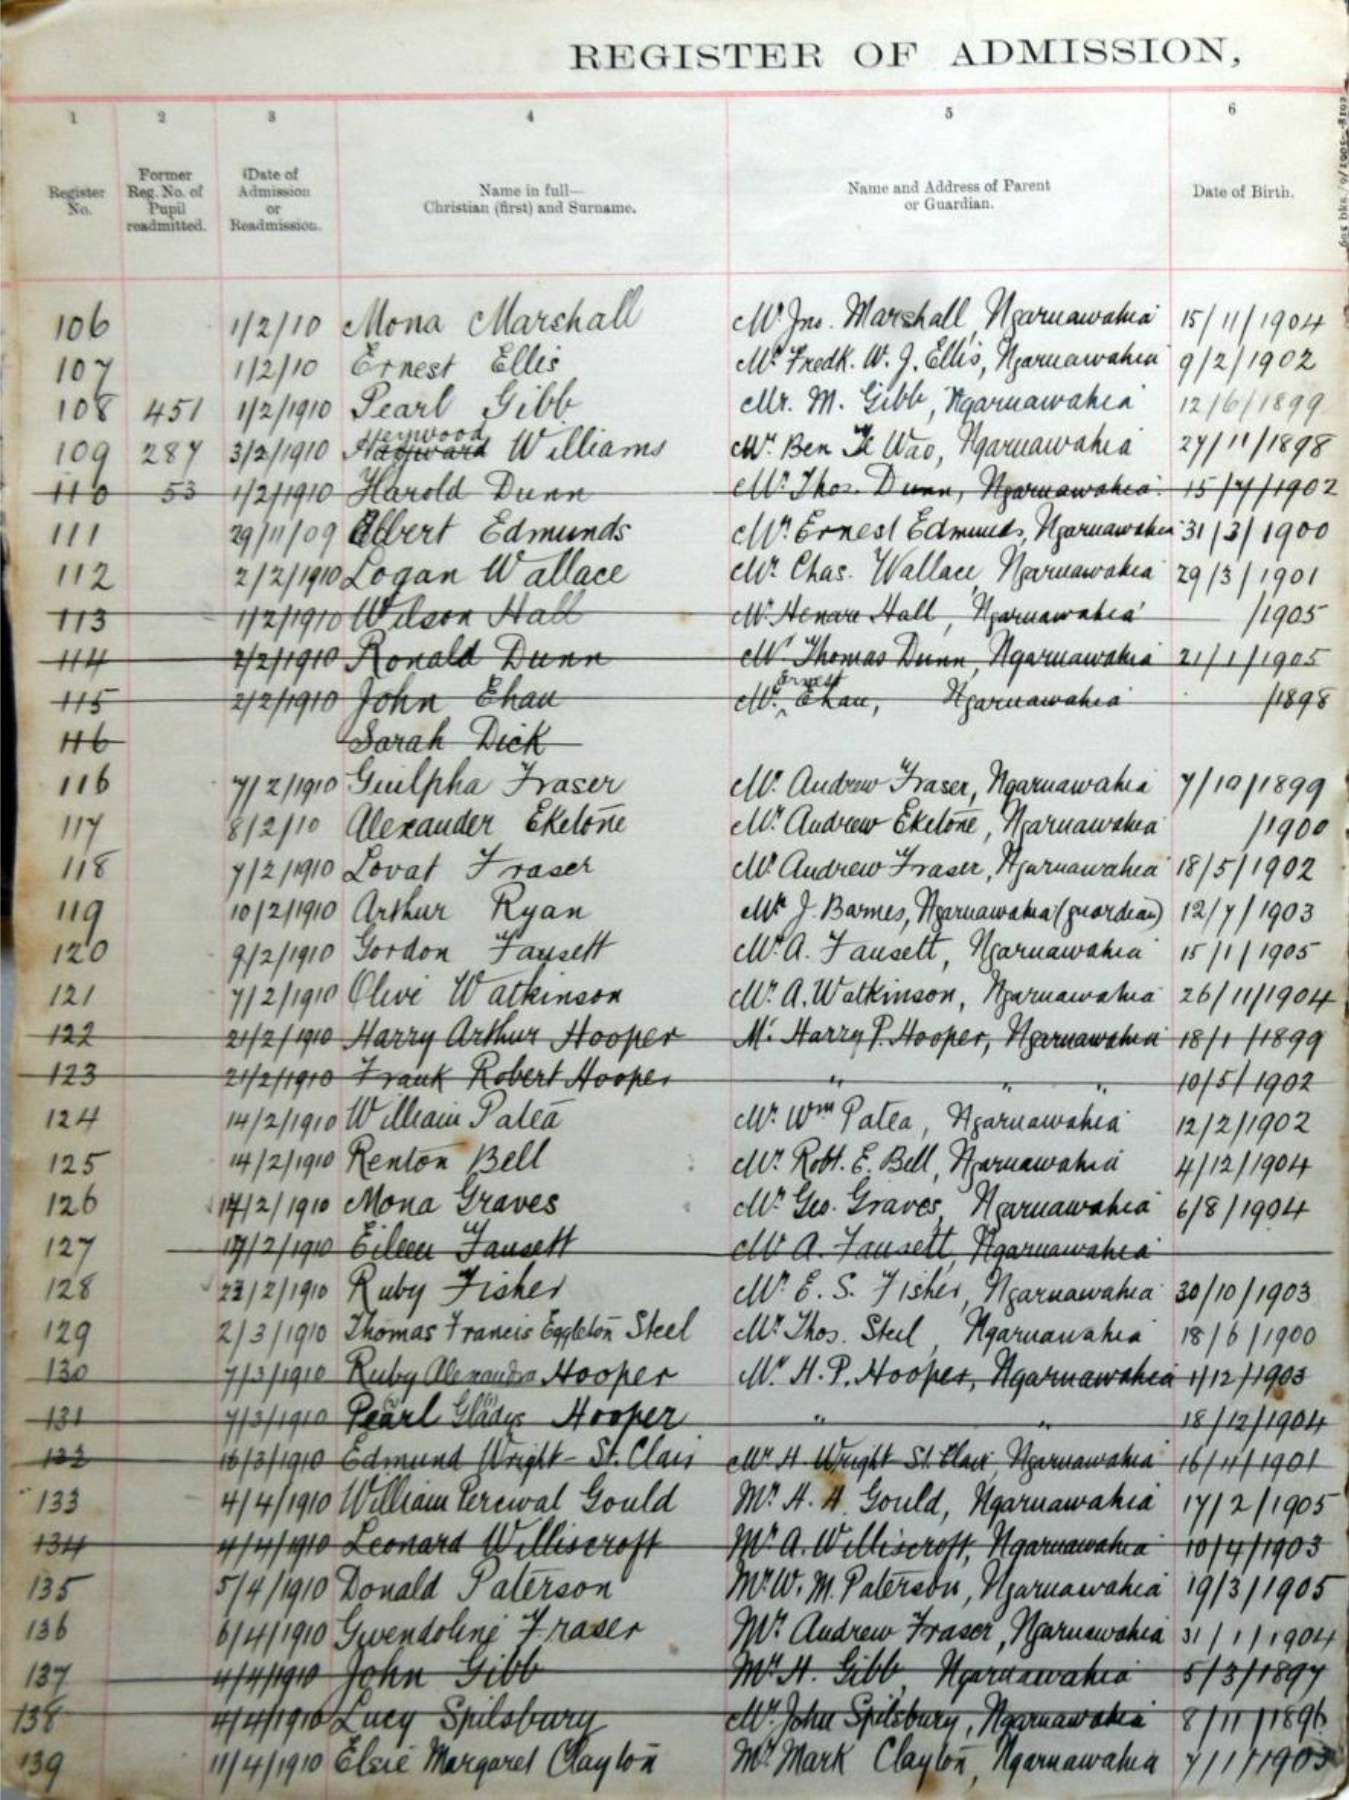 REGISTER OF ADMISSION,
1 2 3 4 5 6
Register No. Former Reg. No. of Pupil readmitted. Date of Admission or Readmission. Name in full— Christian (first) and Surname. Name and Address of Parent or Guardian. Date of Birth.
106 1/2/10 Mona Marshall Mr. Jno. Marshall, Ngaruawahia 15/11/1904
107 1/2/10 Ernest Ellis Mr. Fredk. W. J. Ellis, Ngaruawahia 9/2/1902
108 451 1/2/1910 Pearl Gibb Mr. M. Gibb, Ngaruawahia 12/6/1899
109 287 3/2/1910 Hayward Heywood Williams Mr. Ben Te Wao, Ngaruawahia 27/11/1898
110 53 1/2/1910 Harold Dunn Mr. Thos. Dunn, Ngaruawahia 15/7/1902
111 29/11/09 Albert Edmunds Mr. Ernest Edmunds, Ngaruawahia 31/3/1900
112 2/2/1910 Logan Wallace Mr. Chas. Wallace, Ngaruawahia 29/3/1901
113 1/2/1910 Wilson Hall Mr. Henare Hall, Ngaruawahia /1905
114 2/2/1910 Ronald Dunn Mr. Thomas Dunn, Ngaruawahia 21/1/1905
115 2/2/1910 John Ehau Mr. Ernest Ehau, Ngaruawahia /1898
116 Sarah Dick
116 7/2/1910 Guilpha Fraser Mr. Andrew Fraser, Ngaruawahia 7/10/1899
117 8/2/10 Alexander Eketone Mr. Andrew Eketone, Ngaruawahia /1900
118 7/2/1910 Lovat Fraser Mr. Andrew Fraser, Ngaruawahia 18/5/1902
119 10/2/1910 Arthur Ryan J. Barnes, Ngaruawahia (guardian) 12/7/1903
120 9/2/1910 Gordon Fausett Mr. A. Fausett, Ngaruawahia 15/1/1905
121 7/2/1910 Olive Watkinson Mr. A. Watkinson, Ngaruawahia 26/11/1904
122 21/2/1910 Harry Arthur Hooper Mr. Harry P. Hooper, Ngaruawahia 18/1/1899
123 21/2/1910 Frank Robert Hooper " " " 10/5/1902
124 14/2/1910 William Patea Mr. Wm Patea, Ngaruawahia 12/2/1902
125 14/2/1910 Renton Bell Mr. Robt. E. Bell, Ngaruawahia 4/12/1904
126 14/2/1910 Mona Graves Mr. Geo. Graves, Ngaruawahia 6/8/1904
127 /2/1910 Eileen Fausett Mr. A. Fausett, Ngaruawahia
128 /2/1910 Ruby Fisher Mr. E. S. Fisher, Ngaruawahia 30/10/1903
129 2/3/1910 Thomas Francis Eggleton Steel Mr. Thos. Steel, Ngaruawahia 18/6/1900
130 7/3/1910 Ruby Alexandra Hooper Mr. H. P. Hooper, Ngaruawahia 1/12/1903
131 7/3/1910 Pearl Gladys Hooper " " 18/12/1904
132 16/3/1910 Edmund Wright-St. Clair Mr. H. Wright St. Clair, Ngaruawahia 16/11/1901
133 4/4/1910 William Percival Gould Mr. H. H. Gould, Ngaruawahia 17/2/1905
134 4/4/1910 Leonard Williscroft Mr. A. Williscroft, Ngaruawahia 10/4/1903
135 5/4/1910 Donald Paterson Mr. W. M. Paterson, Ngaruawahia 19/3/1905
136 6/4/1910 Gwendoline Fraser Mr. Andrew Fraser, Ngaruawahia 31/1/1904
137 4/4/1910 John Gibb Mr. H. Gibb, Ngaruawahia 5/3/1897
138 4/4/1910 Lucy Spilsbury Mr. John Spilsbury, Ngaruawahia 8/11/1896
139 11/4/1910 Elsie Margaret Clayton Mr. Mark Clayton, Ngaruawahia